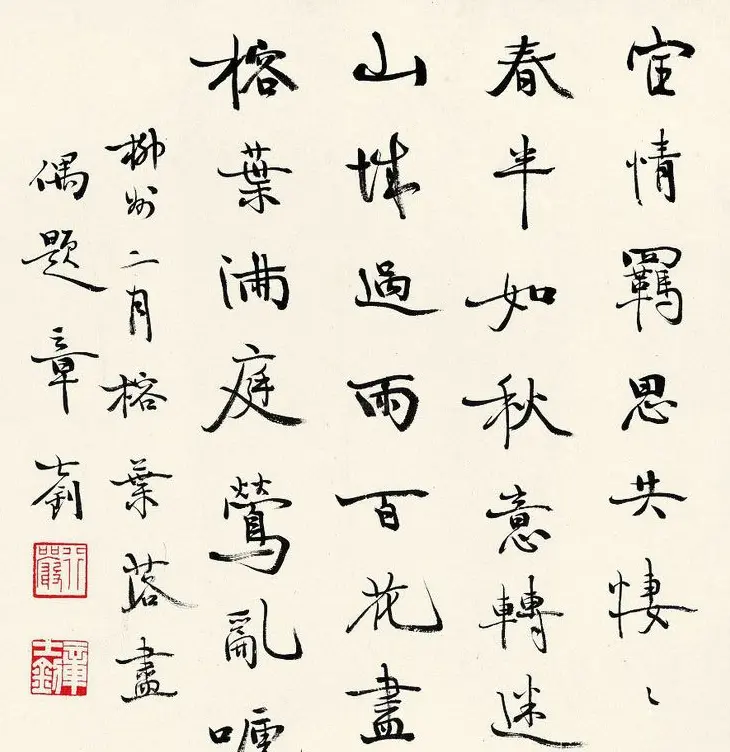 宦情羈思共悽〻
春半如秋意轉迷
山城過雨百花盡
榕葉滿庭鶯亂啼
柳州二月榕葉落盡
偶題 章士釗
行嚴
章士釗